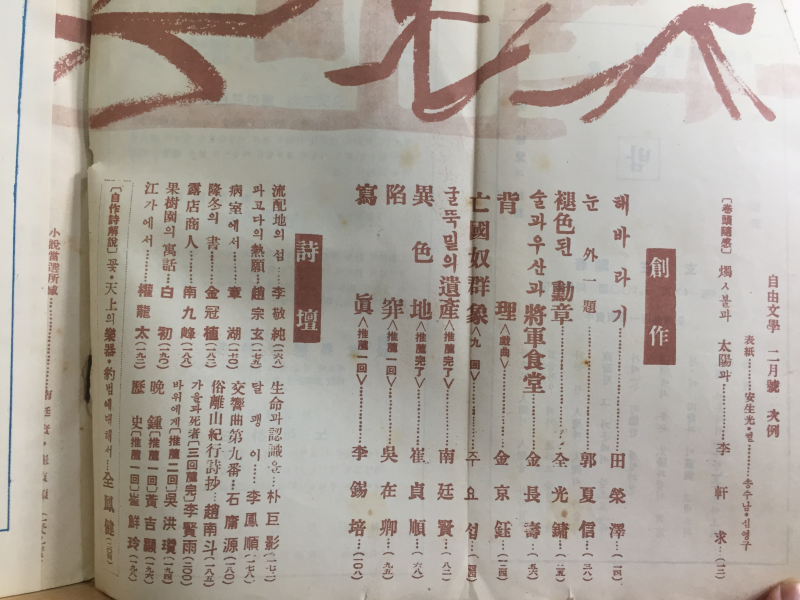 自由文學 二月號 次例
表紙……安生光・컽……송수남・신영구
［卷頭隨感］ 燭ㅅ불과 太陽과……李軒求…(一三)
創作
해바라기……田榮澤…(一四)
눈 外一題……郭夏信…(三八)
褪色된 勳章……全光鏞…(二五)
술과 우산과 將軍食堂……金長壽…(五六)
背理<戯曲>……金京鈺…(一二四)
亡國奴群象<九回>……주요섭…(四四)
굴뚝밑의 遺産<推薦完了>……南廷賢…(八二)
異色地<推薦完了>……崔貞順…(六八)
陷穽<推薦一回>……吳在卿…(九五)
寫眞<推薦一回>……李錫培…(一〇八)
詩壇
流配地의 섬……李敬純…(一六八)
파고다의 熱願……趙宗玄…(一七五)
病室에서……章湖…(一七〇)
隆冬의 書……金冠植…(一八六)
露店商人……南九峰…(一八八)
果樹園의 寓話……白初…(一九〇)
江가에서……權龍太…(一九二)
生命과 認識은……朴巨影…(一七二)
달팽이……李鳳順…(一七八)
交響曲第九番……石庸源…(一八〇)
俗離山紀行詩抄…趙南斗…(一八五)
가을과 死者［三回薦完］李賢雨…(二〇〇)
바위에게［推薦二回］吳洪瓚…(一九四)
晩鍾［推薦一回］黃吉顯…(一九六)
歷史［推薦一回］崔鮮玲…(一九八)
［自作詩解說］ 꽃・天上의 樂器・豹범에 대해서…全鳳健…(二〇四)
小說當選所感
밤